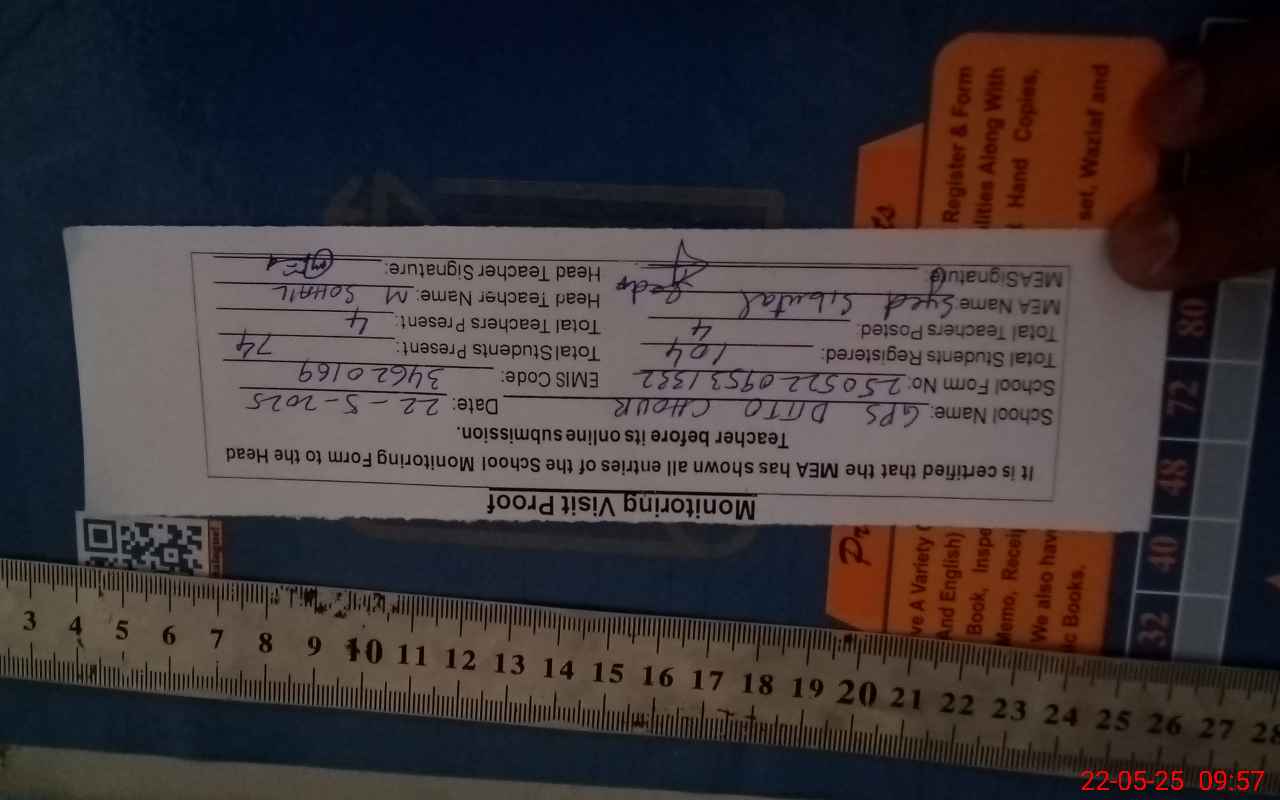 Monitoring Visit Proof
It is certified that the MEA has shown all entries of the School Monitoring Form to the Head
Teacher before its online submission.
School Name: GPS DITTO CHOUR Date: 22-5-2025
School Form No: 25052209531332 EMIS Code: 34620169
Total Students Registered: 104 Total Students Present: 74
Total Teachers Posted: 4 Total Teachers Present: 4
MEA Name: Syed Sibutal Head Teacher Name: M SOHAIL
MEA Signature: Head Teacher Signature:
Register & Form
lities Along With
Hand Copies,
set, Waziaf and
ts
Pr
ve A Variety
And English)
Book, Inspe
Memo, Recei
We also hav
ic Books.
80
72
48
40
32
3 4 5 6 7 8 9 10 11 12 13 14 15 16 17 18 19 20 21 22 23 24 25 26 27 28
22-05-25 09:57